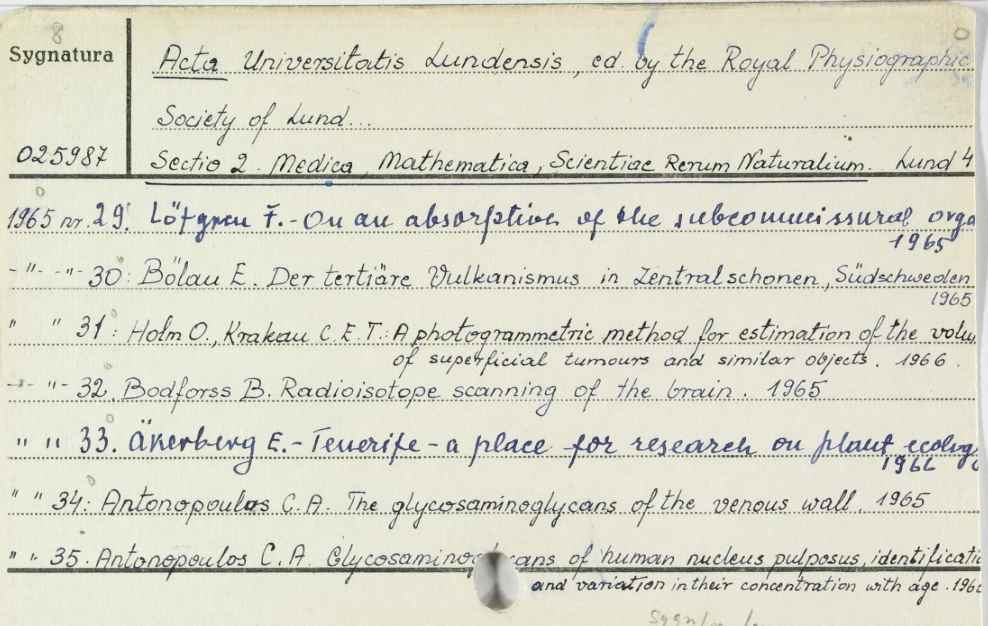 8
Sygnatura
Acta Universitatis Lundensis, ed. by the Royal Physiographic
Society of Lund...
025987
Sectio 2. Medica, Mathematica, Scientiae Rerum Naturalium. Lund 4
1965 nr. 29. Löfgren F. - On an absorptive of the subcommissural orga
1965
-"- -"- 30: Bölau E. Der tertiäre Vulkanismus in Zentralschonen, Südschweden
1965
" " 31: Holm O., Krakau C.E.T.: A photogrammetric method for estimation of the volu
of superficial tumours and similar objects. 1966.
-"- -"- 32. Bodforss B. Radioisotope scanning of the brain. 1965
" " 33. Åkerberg E. - Tenerife - a place for research on plant ecolog
" " 34: Antonopoulos C.A. The glycosaminoglycans of the venous wall. 1965
" " 35. Antonopoulos C.A. Glycosaminog cans of human nucleus pulposus, identificati
and variation in their concentration with age. 196